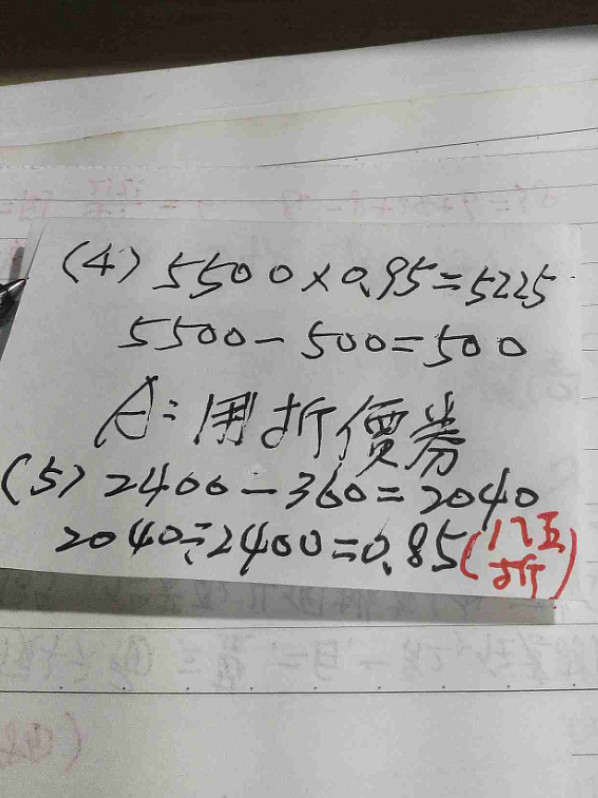 (4) 5500×0.95=5225
5500-500=500
A:用折價券
(5) 2400-360=2040
2040÷2400=0.85(八五
折)